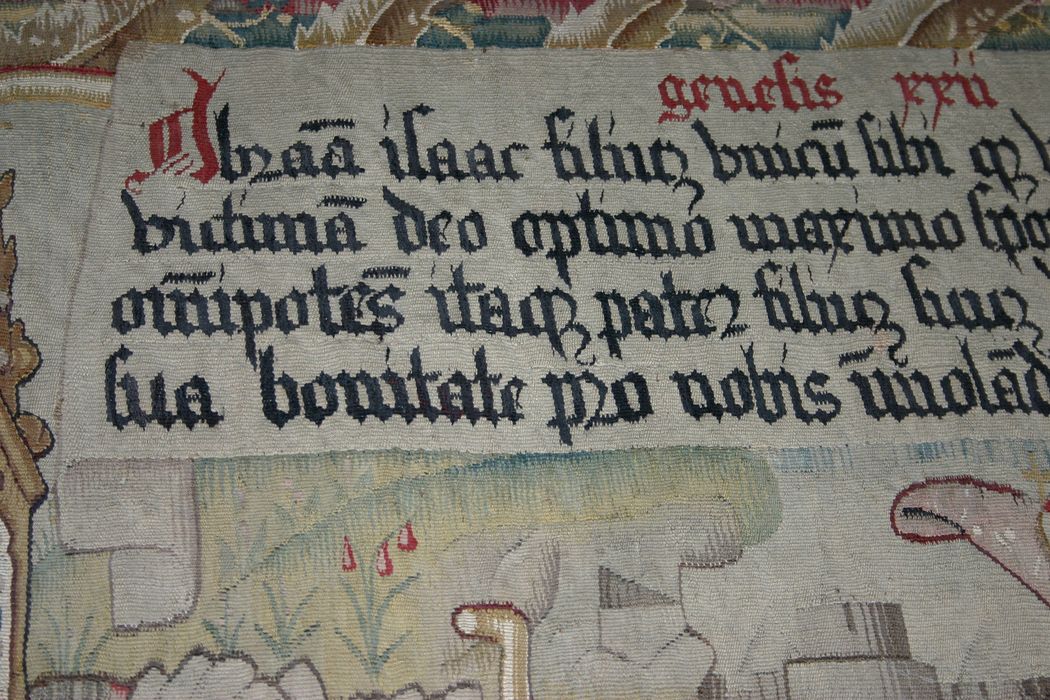 genesis xxii
Abraā isaac filiuꝫ vnicū sibi
victimā deo optimo maximo
om̄ipotēs itaqꝫ pateꝛ filiuꝫ suuꝫ
sua bonitate pro nobis